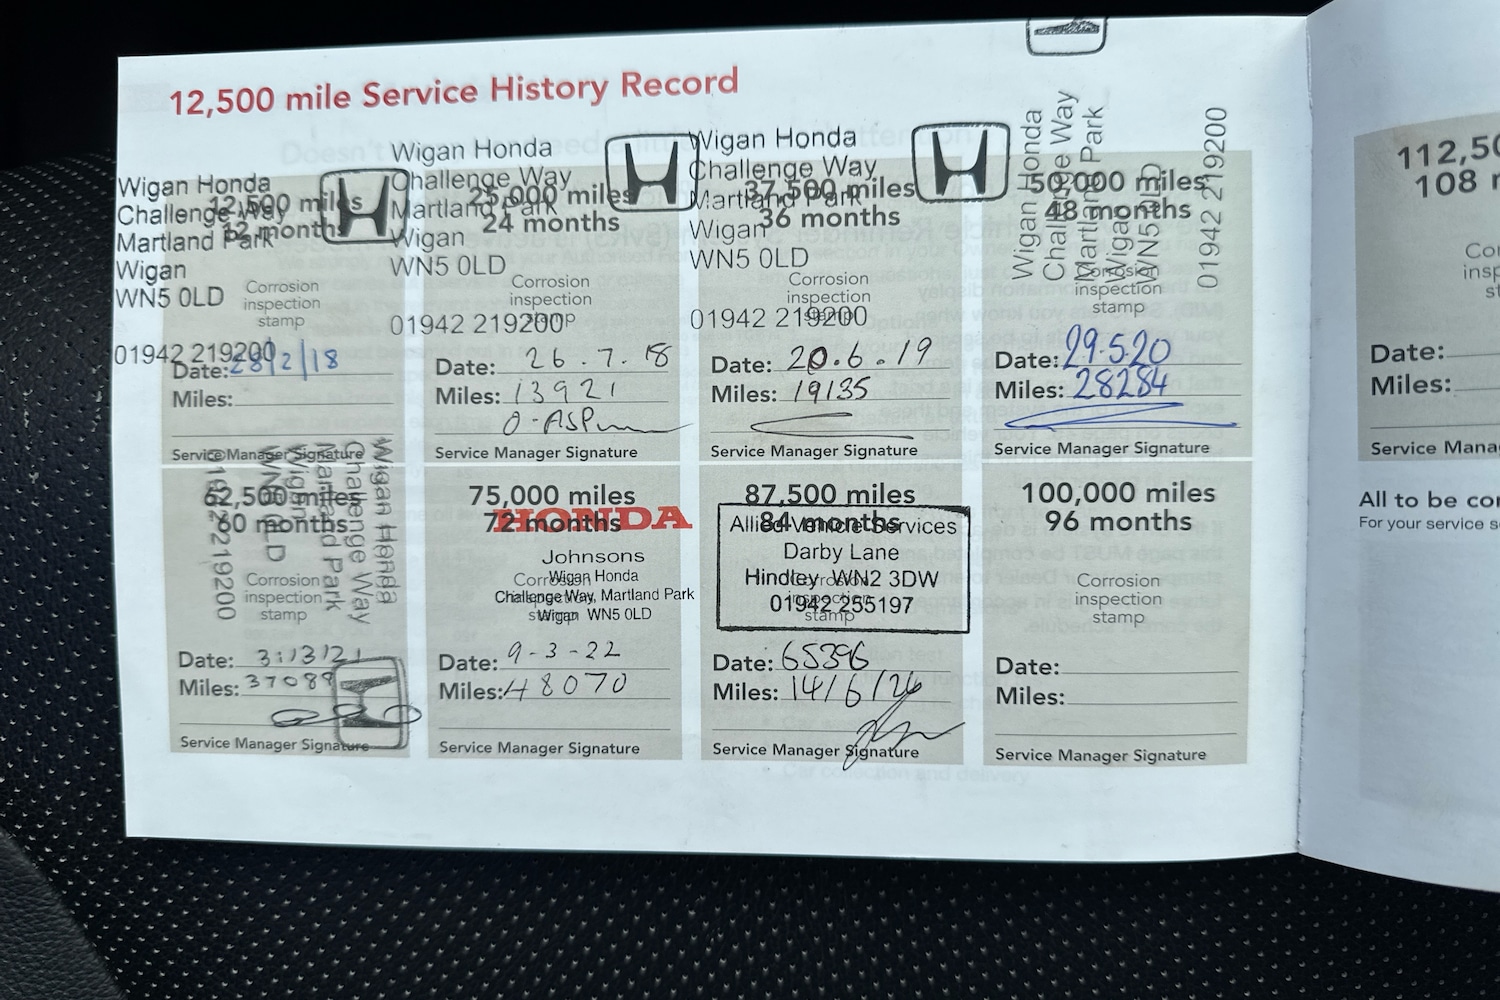 12,500 mile Service History Record
Wigan Honda
Challenge Way
Martland Park
Wigan
WN5 0LD
01942 219200
12,500 miles
12 months
Corrosion
inspection
stamp
Date: 28/2/18
Miles:
Service Manager Signature
Wigan Honda
Challenge Way
Martland Park
Wigan
WN5 0LD
01942 219200
25,000 miles
24 months
Corrosion
inspection
stamp
Date: 26.7.18
Miles: 13921
Service Manager Signature
Wigan Honda
Challenge Way
Martland Park
Wigan
WN5 0LD
01942 219200
37,500 miles
36 months
Corrosion
inspection
stamp
Date: 20.6.19
Miles: 19135
Service Manager Signature
Wigan Honda
Challenge Way
Martland Park
Wigan
WN5 0LD
01942 219200
50,000 miles
48 months
Corrosion
inspection
stamp
Date: 29.5.20
Miles: 28284
Service Manager Signature
Wigan Honda
Challenge Way
Martland Park
Wigan
WN5 0LD
01942 219200
62,500 miles
60 months
Corrosion
inspection
stamp
Date: 31/3/21
Miles: 37089
Service Manager Signature
75,000 miles
72 months
HONDA
Johnsons
Wigan Honda
Challenge Way, Martland Park
Wigan WN5 0LD
Corrosion
inspection
stamp
Date: 9-3-22
Miles: 48070
Service Manager Signature
87,500 miles
84 months
Allied Vehicle Services
Darby Lane
Hindley WN2 3DW
01942 255197
Corrosion
inspection
stamp
Date: 65396
Miles: 14/6/24
Service Manager Signature
100,000 miles
96 months
Corrosion
inspection
stamp
Date:
Miles:
Service Manager Signature
112,50
108
Date:
Miles:
Service Mana
All to be co
For your service